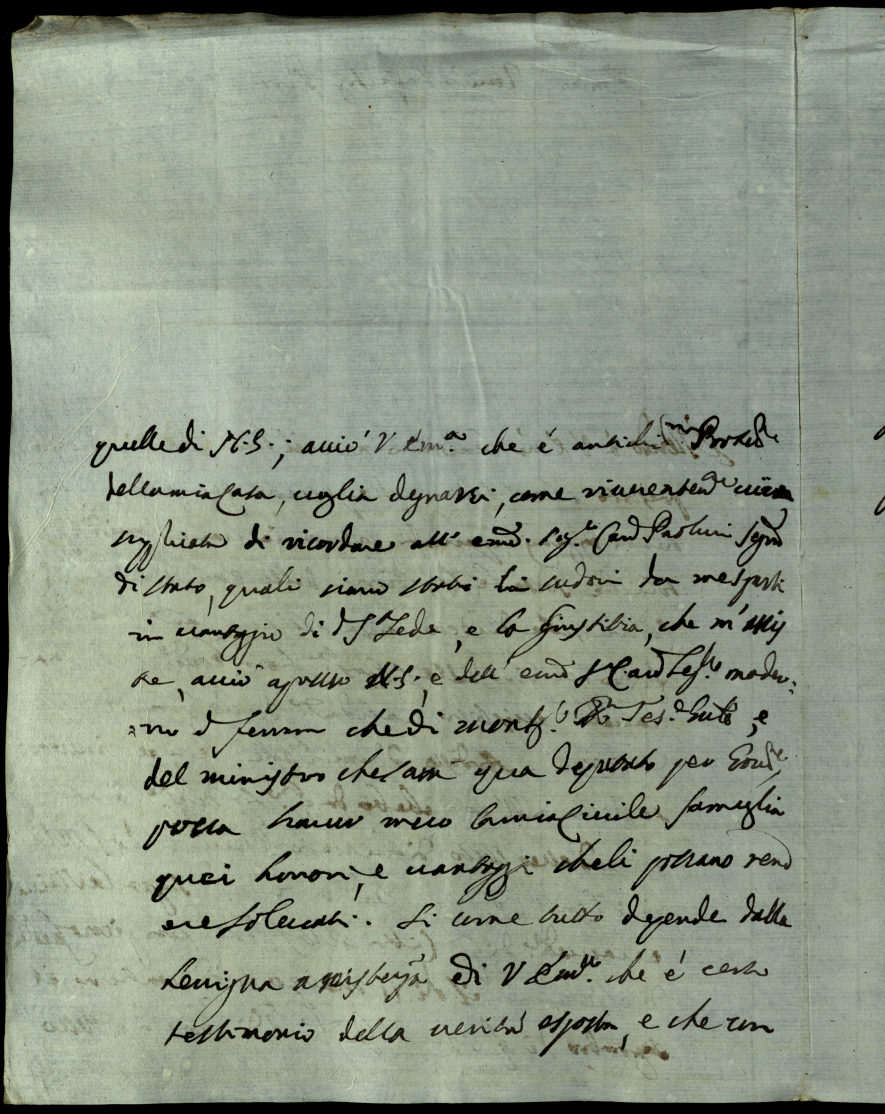 quelle di N.S.; acciò V. Em.ª che è antichis.mo Protet.re
della mia Casa, voglia degnarsi, come riuerentem.te uiene
supplicata di ricordare all' em.o Sig.r Card Paolucci Segr.o
di Stato, quali siano stati li sudori da me sparsi
in uantaggio di S. Sede, e la Giustitia, che m' assis
te, acciò apresso N.S., e dell' em.o S. Card Leg.to moder:
:no di ferrara che di Mons.r Tes.
del ministro che sarà qua deputato per
possa hauer meco la mia Ciuile famiglia
quei honori, e uantaggi che li possano rend
ere solleuati. Si come tutto depende dalla
benigna assistenza di V. Em.ª che è certa
testimonio della uerità esposta, e che con